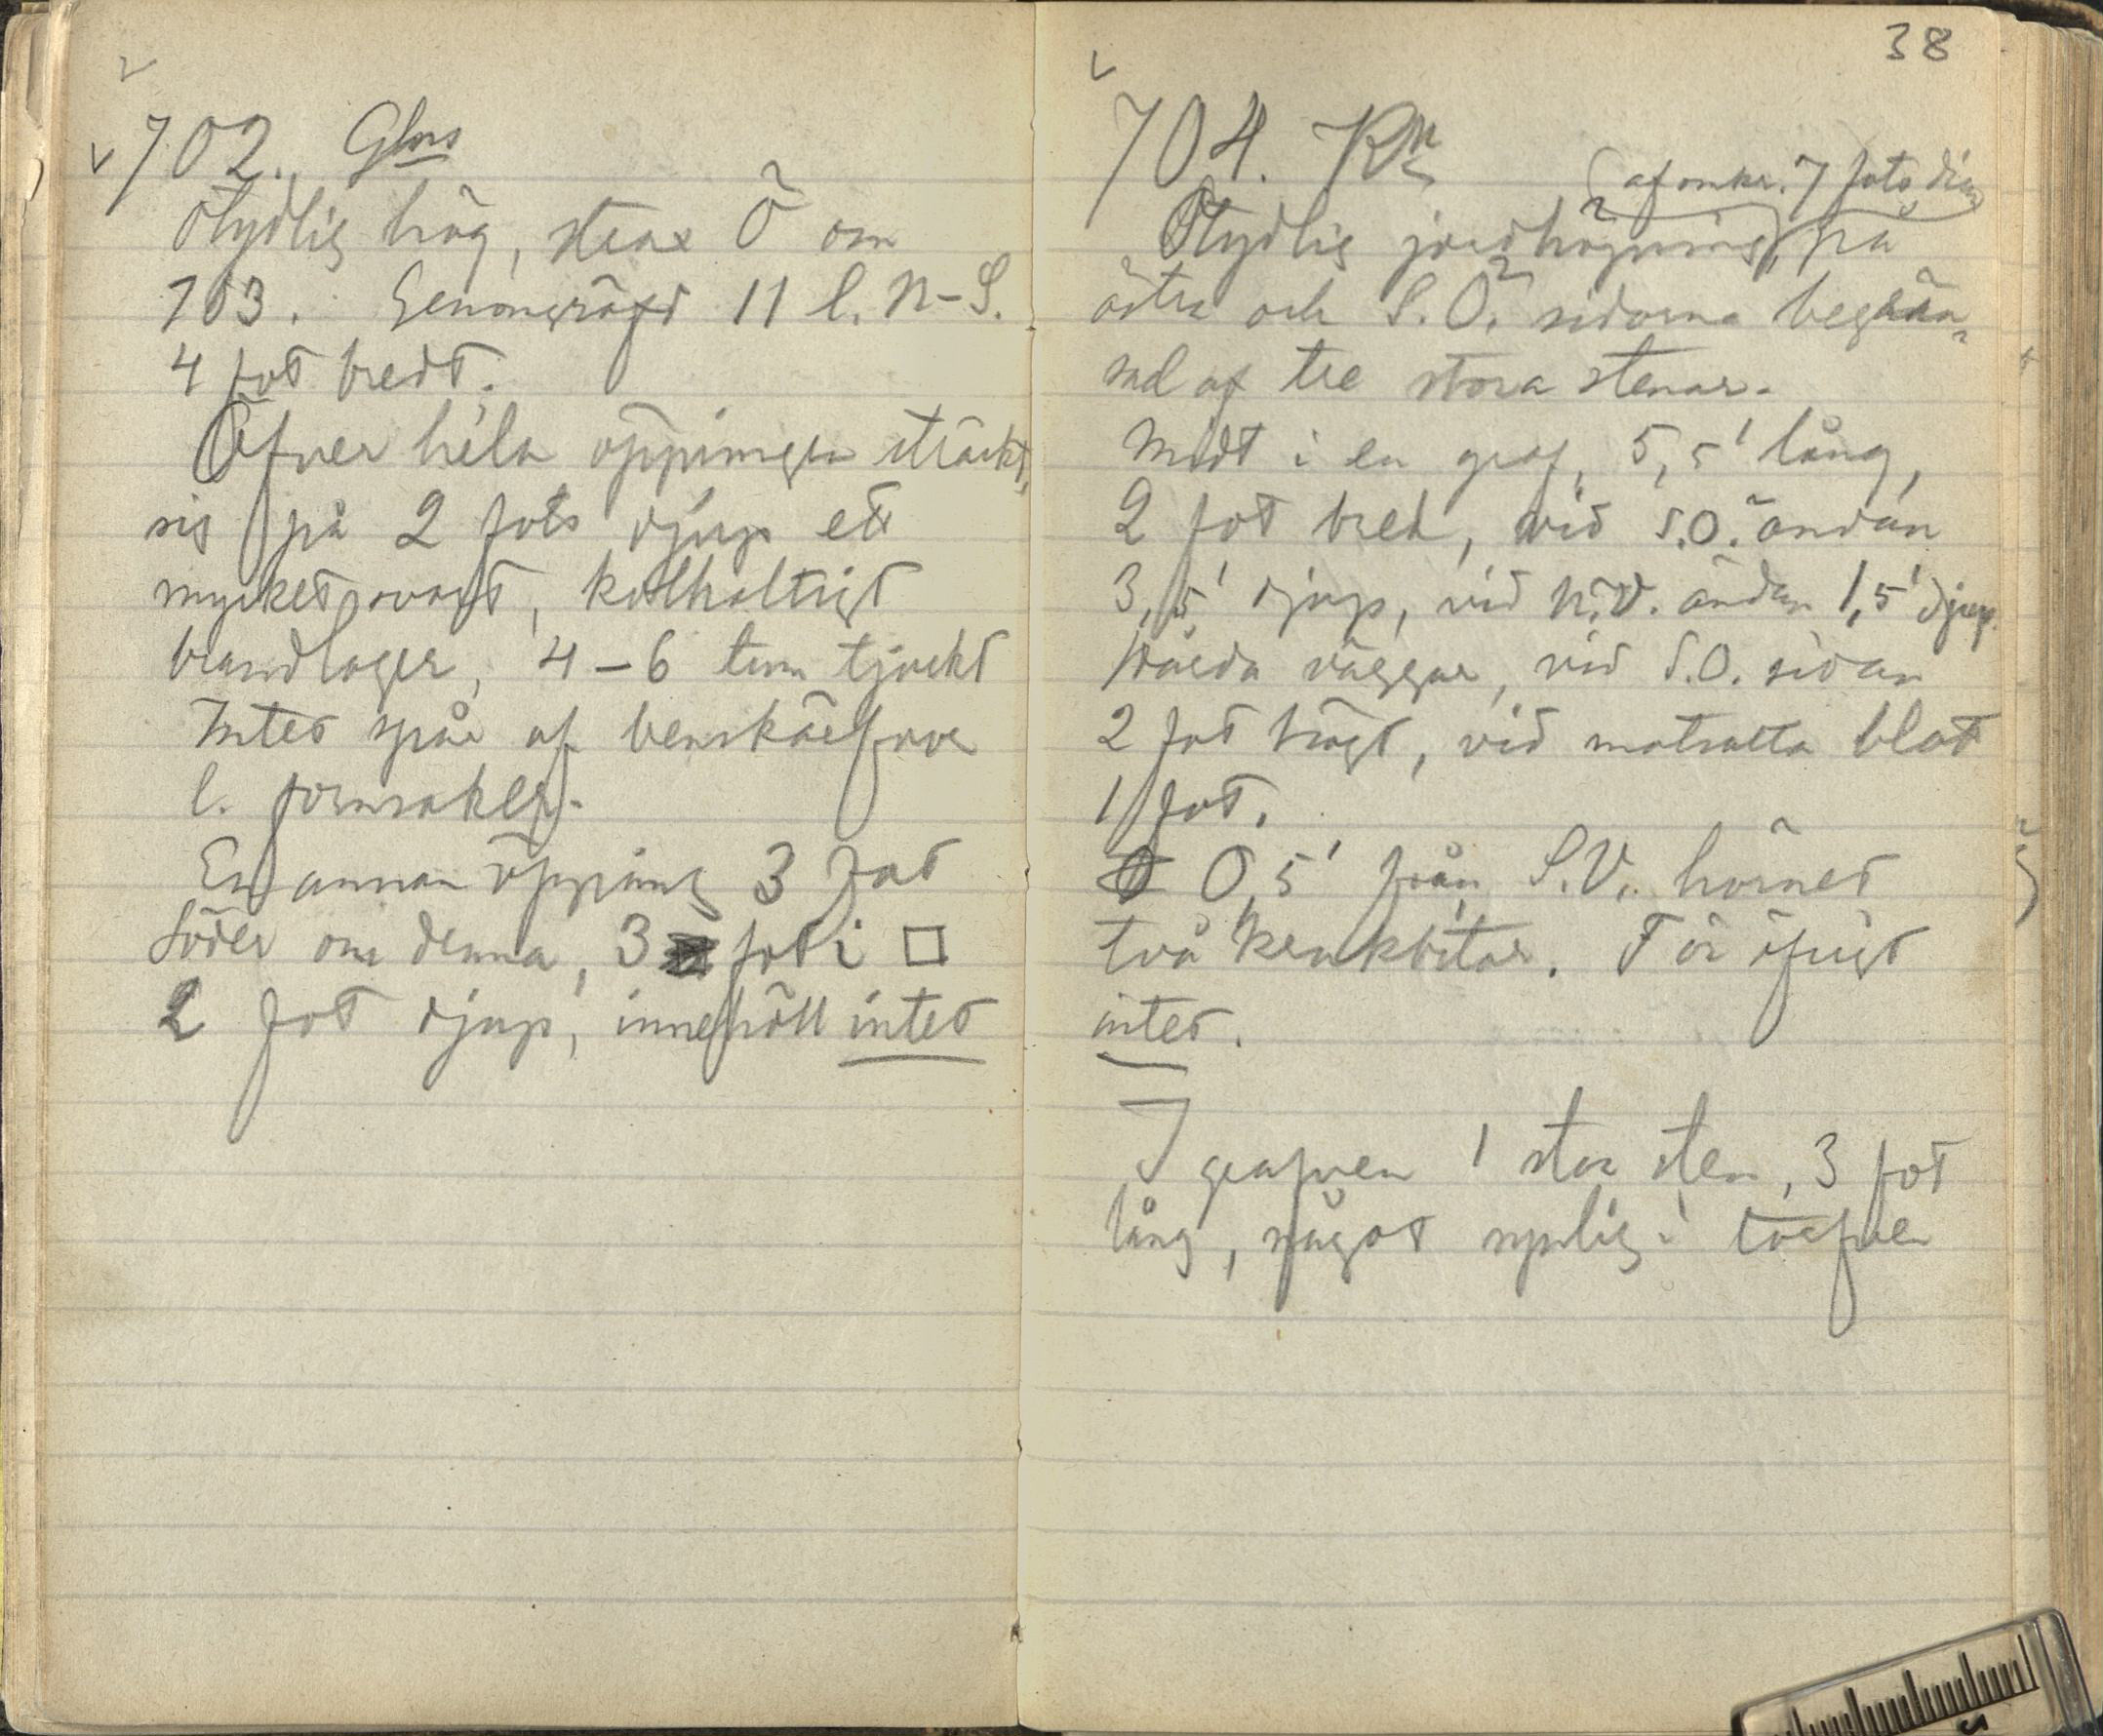 702. Glms
Otydlig hög, strax Ö om
703. Genomgräfd 11 l. N-S.
4 fot bredt.
Öfver hela öppningen sträckt
sig på 2 fots djup ett
mycket svart, kolhaltigt
brandlager, 4-6 tum tjockt
Intet spår af benskärfvor
l. fornsaker.
En annan öppning 3 fot
söder om denna, 3 fot i □
2 fot djup, innehöll intet
38
704. Rm
af omkr. 7 fots diam
Otydlig jordhöjning, på
östra och S.O. sidorna begrän-
sad af tre stora stenar.
Midt i en graf, 5,5' lång,
2 fot bred, vid S.O. ändan
3,5' djup, vid N.V. ändan 1,5' djup.
Hårda väggar, vid S.O. sidan
2 fot högt, vid motsatta blot
1 fot.
0,5' från S.V. hörnet
två krukbitar. För öfrigt
intet.
I grafven 1 stor sten, 3 fot
lång, något synlig i torfven